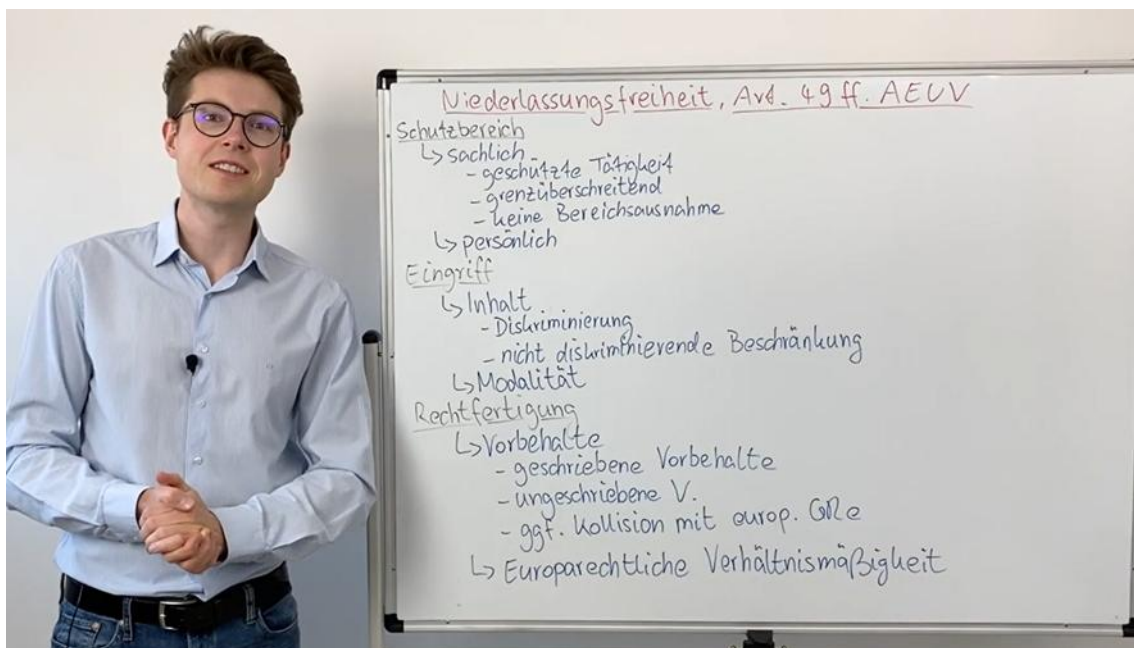 Niederlassungsfreiheit, Art. 49 ff. AEUV
Schutzbereich
↳ sachlich
- geschützte Tätigkeit
- grenzüberschreitend
- keine Bereichsausnahme
↳ persönlich
Eingriff
↳ Inhalt
- Diskriminierung
- nicht diskriminierende Beschränkung
↳ Modalität
Rechtfertigung
↳ Vorbehalte
- geschriebene Vorbehalte
- ungeschriebene V.
- ggf. Kollision mit europ. GRe
↳ Europarechtliche Verhältnismäßigkeit